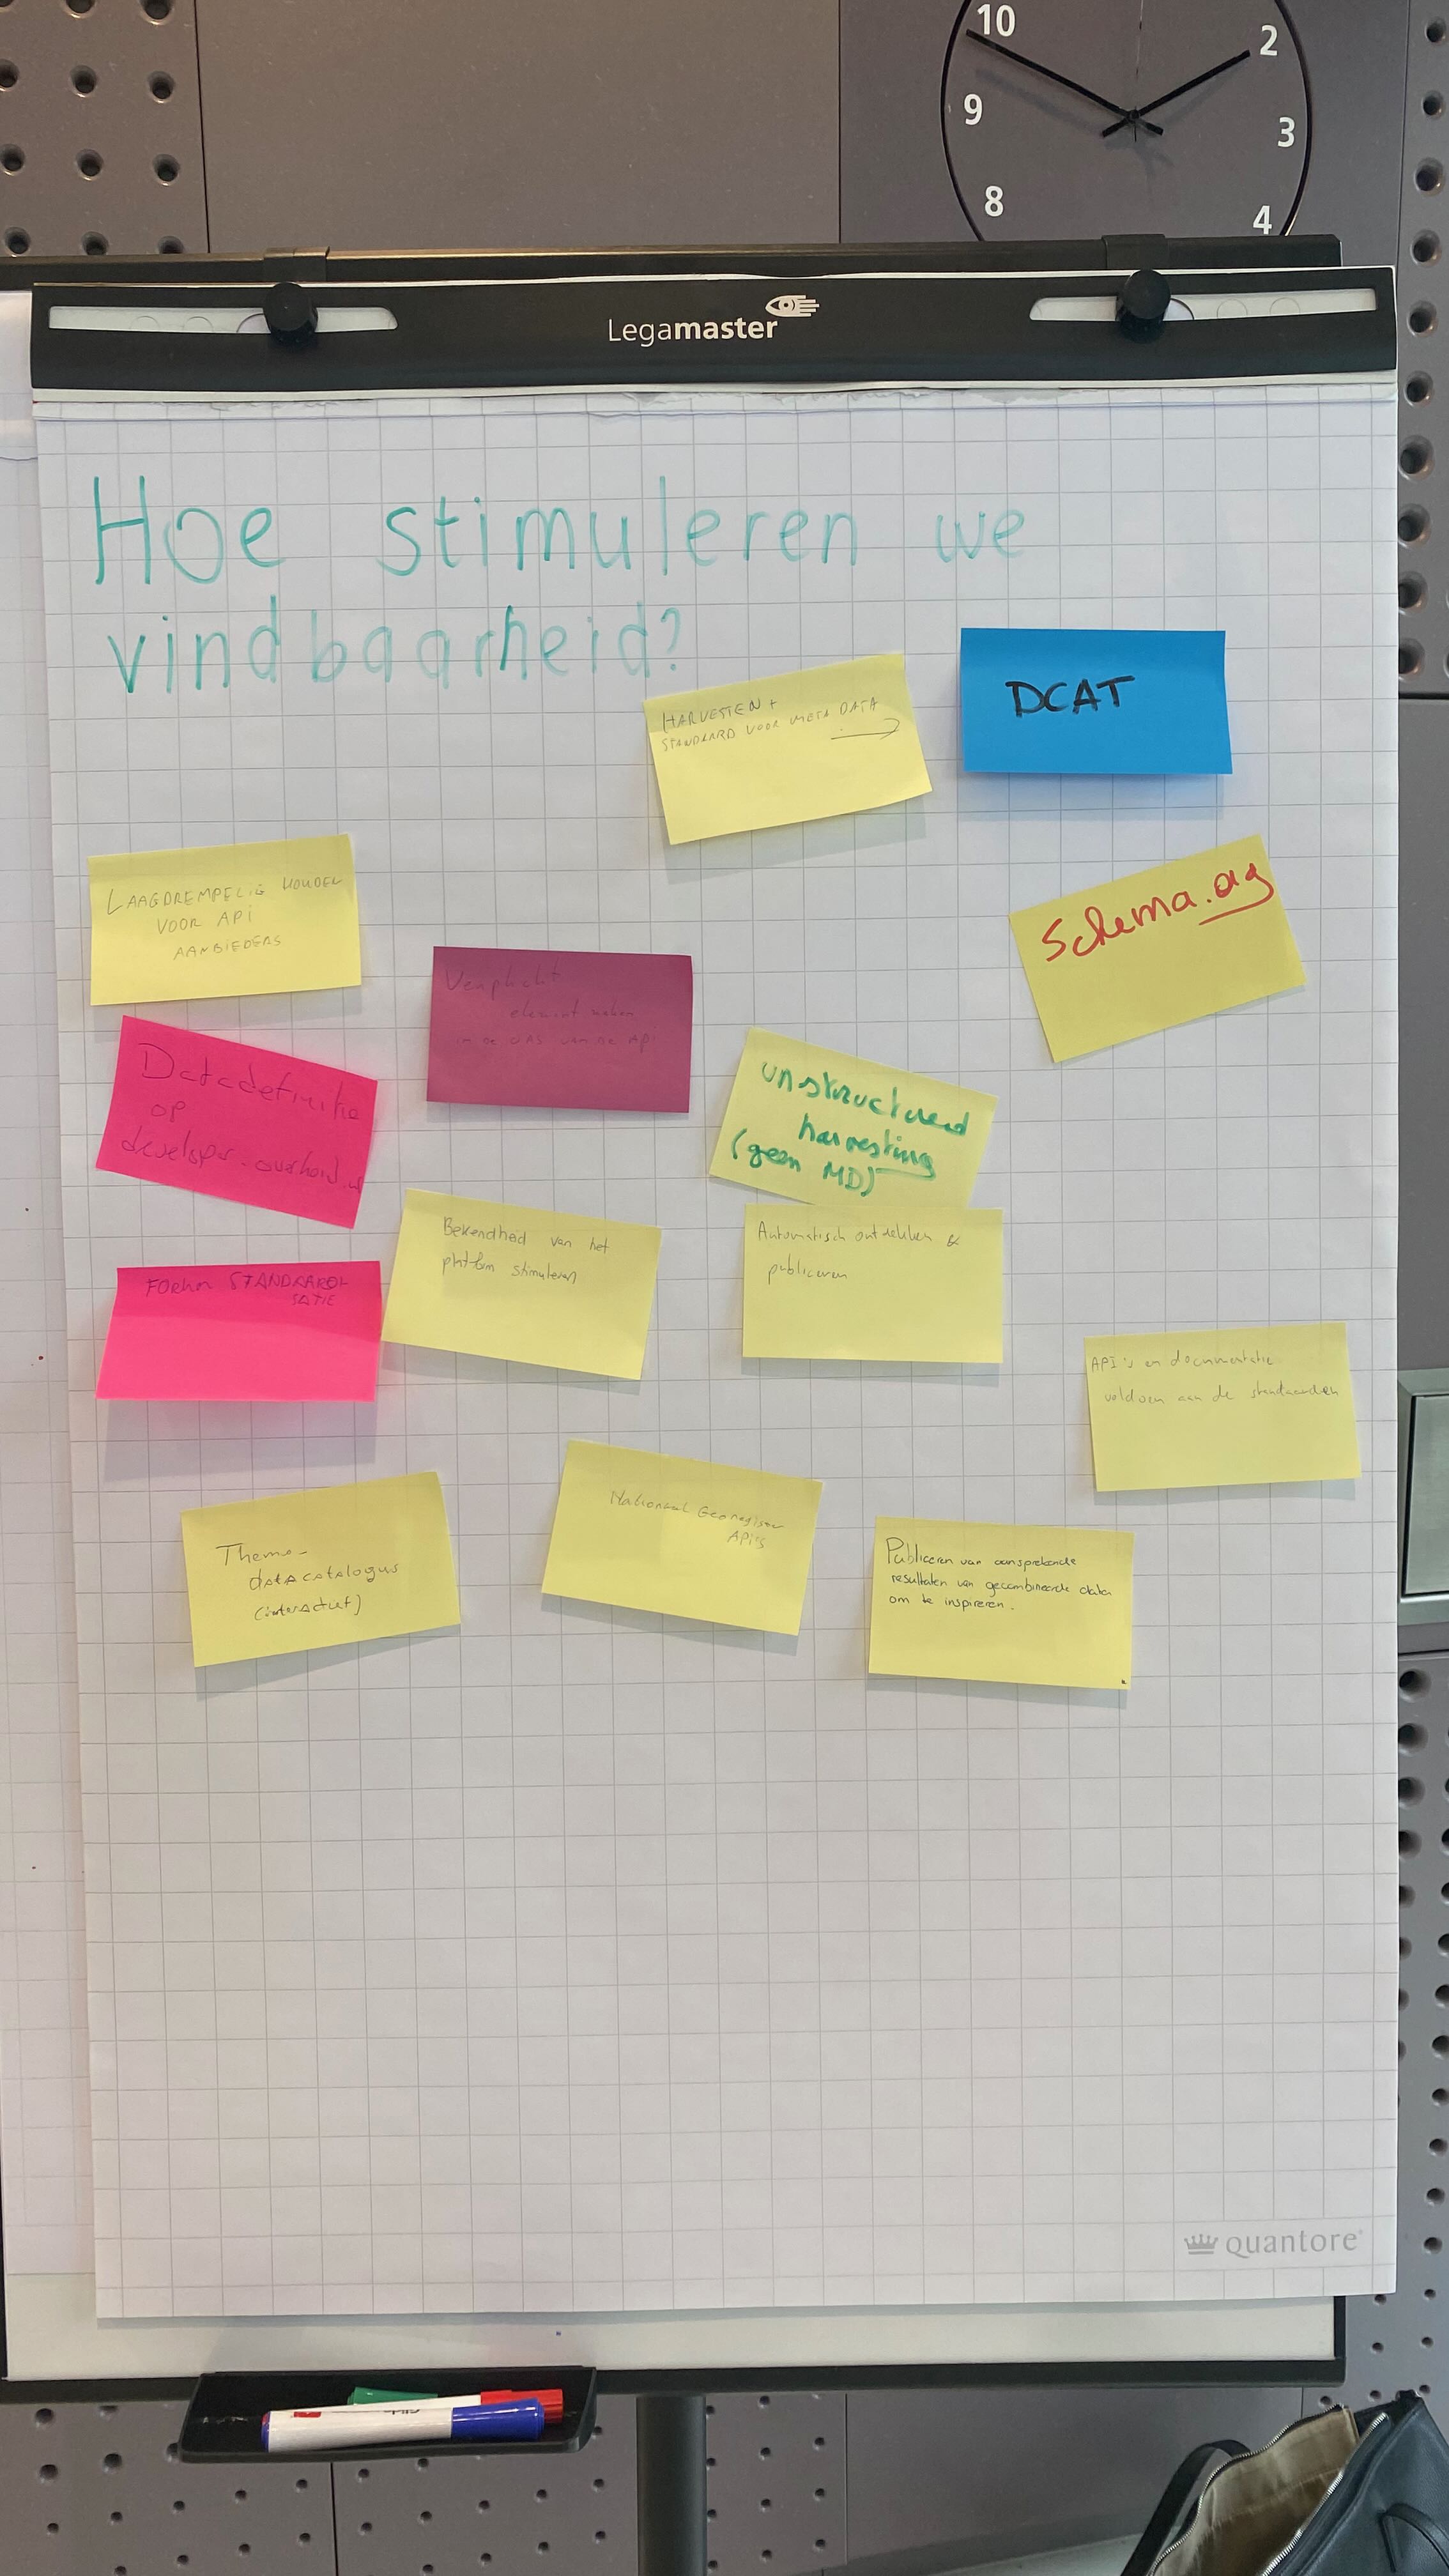 10
2
9
3
8
4
Legamaster
Hoe stimuleren we
vindbaarheid?
HARVESTEN +
STANDAARD VOOR META DATA
DCAT
LAAGDREMPELIG HOUDEN
VOOR API
AANBIEDERS
Schema.org
Verplicht
element maken
in de OAS van de API
Datadefinitie
op
developer.overheid.nl
unstructured
harvesting
(geen MD)
Bekendheid van het
platform stimuleren
Automatisch ontdekken &
publiceren
FORUM STANDAARDI
SATIE
API's en documentatie
voldoen aan de standaarden
Thema-
datacatalogus
(interactief)
Nationaal Georegister
API's
Publiceren van aansprekende
resultaten van gecombineerde data
om te inspireren.
quantore